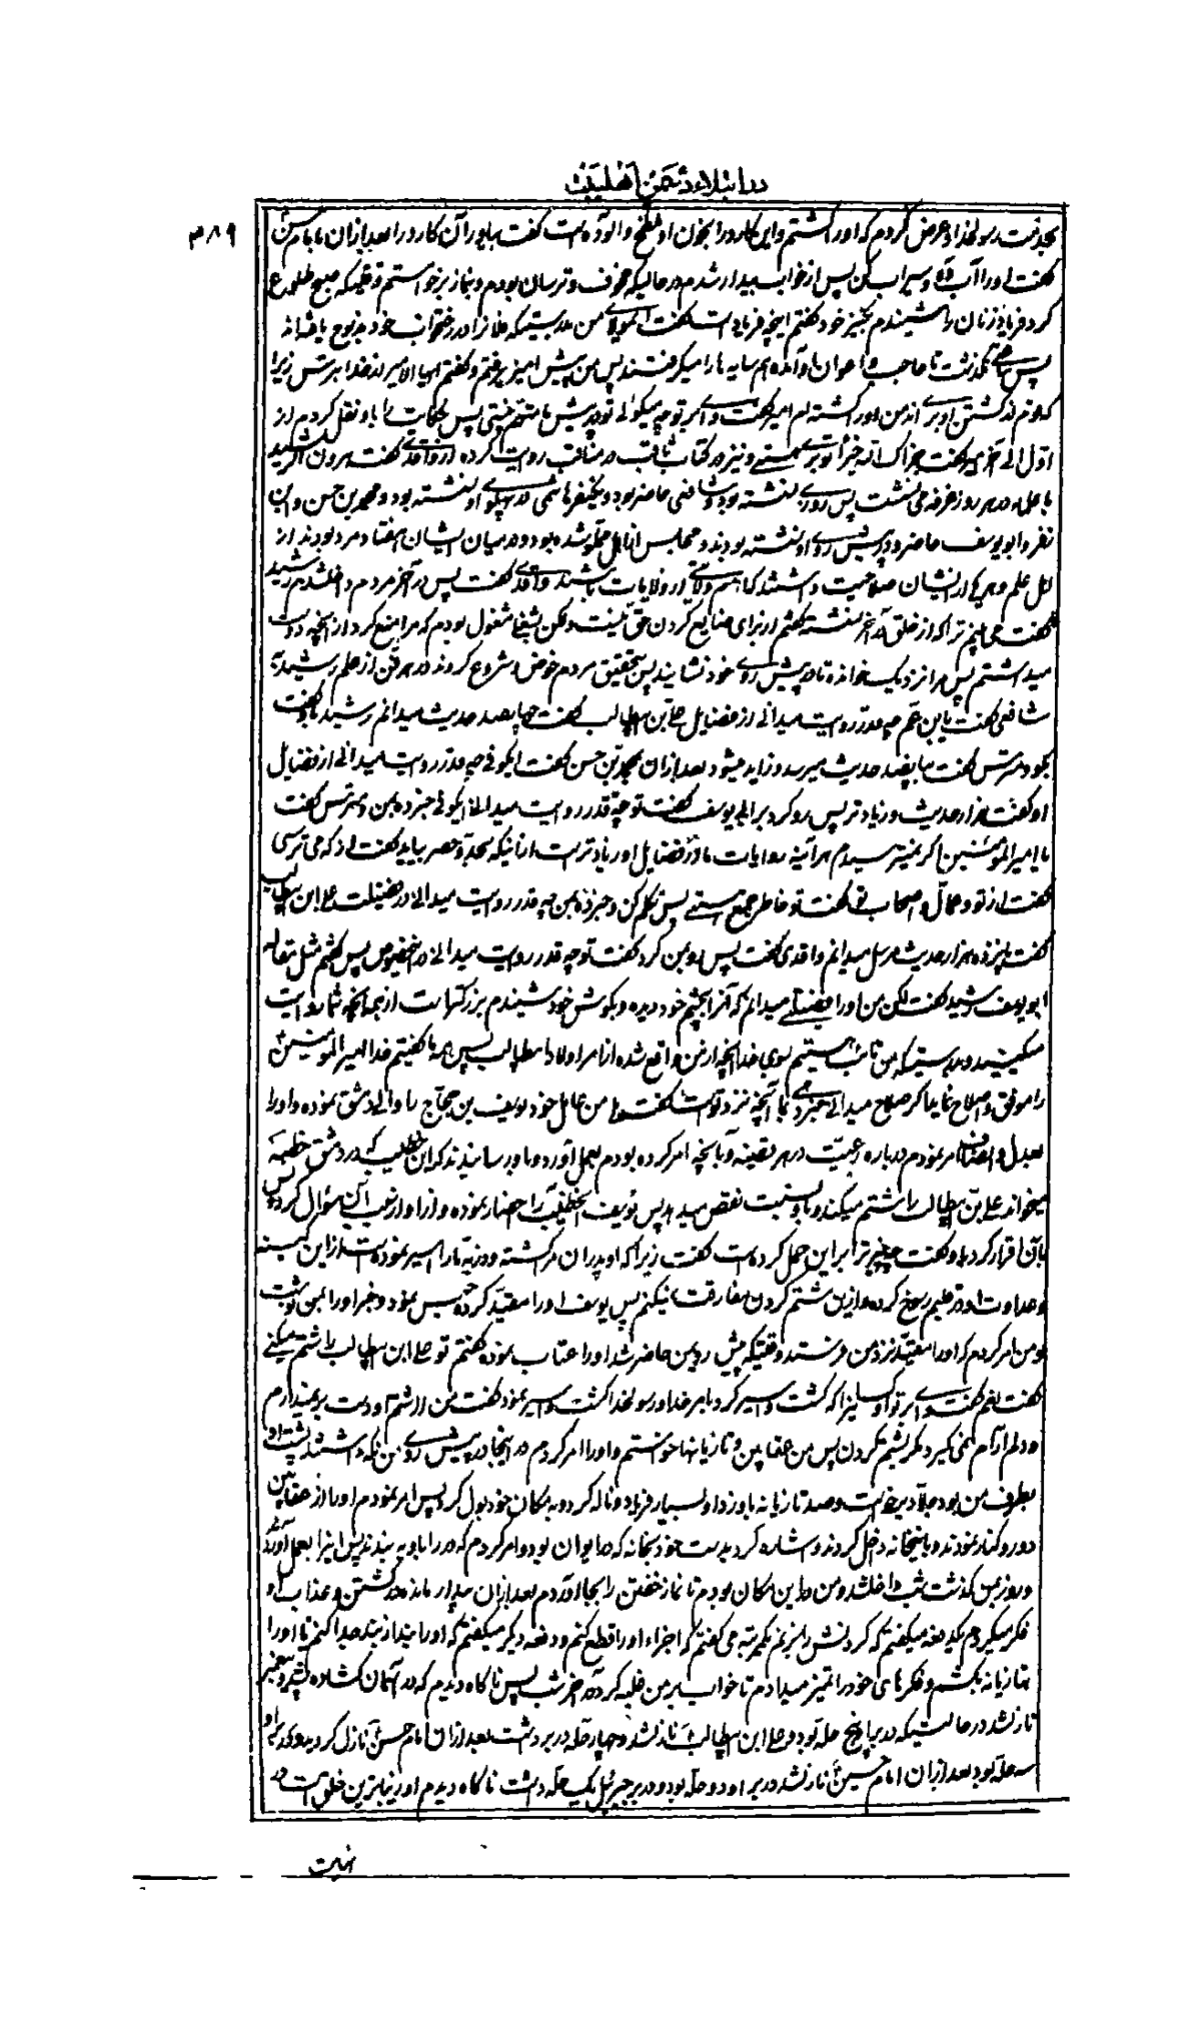 در ابتلاء دشمن اهلبیت
۳۸۹
بخدمت رسولخدا و عرض کردم که او را کشتم و این کارد را بخون او ملطخ و آلوده است گفت بیاور آن کارد را بعد از آن با امام حسن
گفت او را آب ده و سیراب کن پس از خواب بیدار شدم در حالیکه مخوف و ترسان بودم و بنماز برخواستم وقتیکه صبح طلوع
کرد فریاد زنان را شنیدم بکنیز خود گفتم اینچه فریاد است گفت ای مولای من بدرستیکه فلان را در رختخواب خود مذبوح یافته‌اند
پس ساعتی نگذشت تا حاجب و اعوان او آمده همسایه‌ها را میگرفتند پس من پیش امیر رفتم و گفتم ایها الامیر از خدا بترس زیرا
که مردم از کشتن او بری‌اند من او را کشته‌ام امیر گفت وای بر تو چه میگوئی تو در پیش ما متهم نیستی پس حکایت را باو نقل کردم از
اول الی آخر امیر گفت جزاک الله خیرا تو بری هستی و نیز در کتاب ثاقب در مناقب روایت کرده از واقدی گفت هرون الرشید
با علماء در هر روز عرفه می نشست پس روزی نشسته بود و شافعی حاضر بود و یکنفر هاشمی در پهلوی او نشسته بود و محمد بن حسن و این
نفر و ابو یوسف حاضر و در پیش روی او نشسته بودند و مجلس از اهل مملو شده بود و در میان ایشان هفتاد مرد بودند از
اهل علم و هر یکی از ایشان صلاحیت داشتند که امام ولایتی از ولایات باشند واقدی گفت پس در آخر مردم داخل شدم رشید
گفت می بینم ترا که از خلق در آخر نشسته گفتم از برای ضایع کردن حق نیست ولکن بشغلی مشغول بودم که مرا منع کرد از آنچه دوست
میداشتم پس مرا نزدیک خوانده تا در پیش روی خود نشانید پس بتحقیق مردم خوض و شروع کردند در هر فن از علم رشید به
شافعی گفت یا ابن عم چه قدر روایت میدانی از فضایل علی بن ابیطالب گفت چهارصد حدیث میدانم رشید باو گفت
بگو و مترس گفت بپانصد حدیث میرسد و زاید میشود بعد از آن بمحمد بن حسن گفت ای کوفی چه قدر روایت میدانی از فضایل
او گفت هزار حدیث و زیادتر پس رو کرد بر ابی یوسف گفت تو چه قدر روایت میدانی ای کوفی خبر ده بمن و مترس گفت
یا امیرالمؤمنین اگر نمیترسیدم هر آینه روایات ما در فضایل او زیادتر است از آنیکه بحد و حصر بیاید گفت از که می ترسی
گفت از تو و عمال و اصحاب تو گفت تو خاطر جمع هستی پس تکلم کن و خبر ده بمن چه قدر روایت میدانی در فضیلت علی ابن ابیطالب
گفت پانزده هزار حدیث مرسل میدانم واقدی گفت پس رو بمن کرد گفت تو چه قدر روایت میدانی در اینخصوص پس گفتم مثل مقاله
ابو یوسف رشید گفت لکن من او را فضیلتی میدانم که آنرا بچشم خود دیده و بگوش خود شنیدم بزرگتر است از همه آنچه شما روایت
میکنید و بدرستیکه من تائب هستم بسوی خدا آنچه از من واقع شده از امر اولاد ابیطالب پس همه ما گفتیم خدا امیرالمؤمنین
را موفق و اصلاح نماید اگر صلاح میدانی خبر ده ما را به آنچه نزد تو است گفت من عامل خود یوسف بن حجاج را والی دمشق نموده و او را
بعدل و انصاف امر نمودم درباره رعیت در هر قضیه و بآنچه امر کرده بودم بعمل آورد و باو رسانیدند که این خطیب که در دمشق خطبه
میخواند علی بن ابیطالب را شتم میکند و باو نسبت نقص میدهد پس یوسف آن خطیب را احضار نموده و از او از سب آن سؤال کرده پس
بآن اقرار کرد باو گفت چه چیز ترا بر این حمل کرده است گفت زیرا که او پدران مرا کشته و ذریه ما را اسیر نموده است از این کینه
و عداوت او در قلبم رسوخ کرده و از این شتم کردن مفارقت نمیکنم پس یوسف او را مقید کرده حبس نمود و خبر او را بمن نوشت
و من امر کردم که او را مقید نزد من فرستد وقتیکه پیش روی من حاضر شد او را عتاب نموده گفتم تو علی ابن ابیطالب را شتم میکنی
گفت بلی گفتم وای بر تو او کسانیرا که کشت و اسیر کرد بامر خدا و رسولخدا کشت و اسیر نمود گفت من از شتم او دست برنمیدارم
و دلم آرام نمی گیرد مگر بشتم کردن پس من عقابین و تازیانها خواستم و او را امر کردم در اینجا در پیش روی من نگه داشتند پشت او
بطرف من بود جلاد برخاست و صد تازیانه باو زد او بسیار فریاد و ناله کرد و به مکان خود بول کرد پس امر نمودم او را از عقابین
دور و کنار نمودند و باینخانه داخل کردند و اشاره کرد بدست خود بخانه که در ایوان بود و امر کردم که در را باو به بندند پس اینرا بعمل آوردند
و روز بمن گذشت شب داخل شد و من در این مکان بودم تا نماز خفتن را بجا آوردم بعد از آن بیدار مانده در کشتن و عذاب او
فکر میکردم یکدفعه میگفتم که گردنش را بزنم یکمرتبه می گفتم که اجزاء او را قطع کنم و دفعه دیگر میگفتم که او را بند از بند جدا کنم یا او را
بتازیانه بکشم و فکرهای خود را تمیز میدادم تا خواب بر من غلبه کرد در آخر شب پس ناگاه دیدم که در آسمان گشاده گشته و پیغمبر
نازل شد در حالتیکه در بر او پنج حله بود و علی ابن ابیطالب نازل شد و چهار حله در بر داشت بعد از آن امام حسن نازل گردید و در بر او
سه حله بود بعد از آن امام حسین نازل شد در بر او دو حله بود و در بر جبرئیل یک حله داشت ناگاه دیدم او زیباترین خلق است در
نهایت